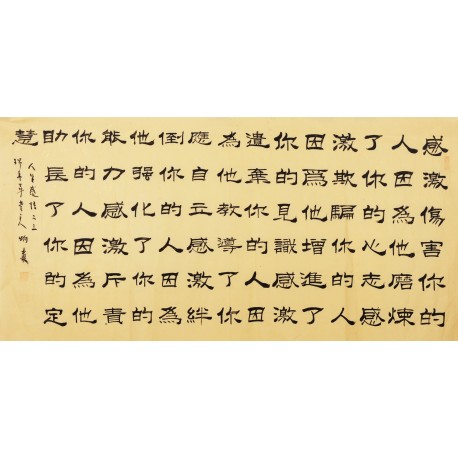 感激傷害你的
人因為他磨煉
了你的心志感
激欺騙你的人
因爲他增進了
你的見識感激
遺棄你的人因
為他教導了你
應自立感激絆
倒你的人因為
他强化了你的
能力感激斥責
你的人因為他
助長了你的定
慧